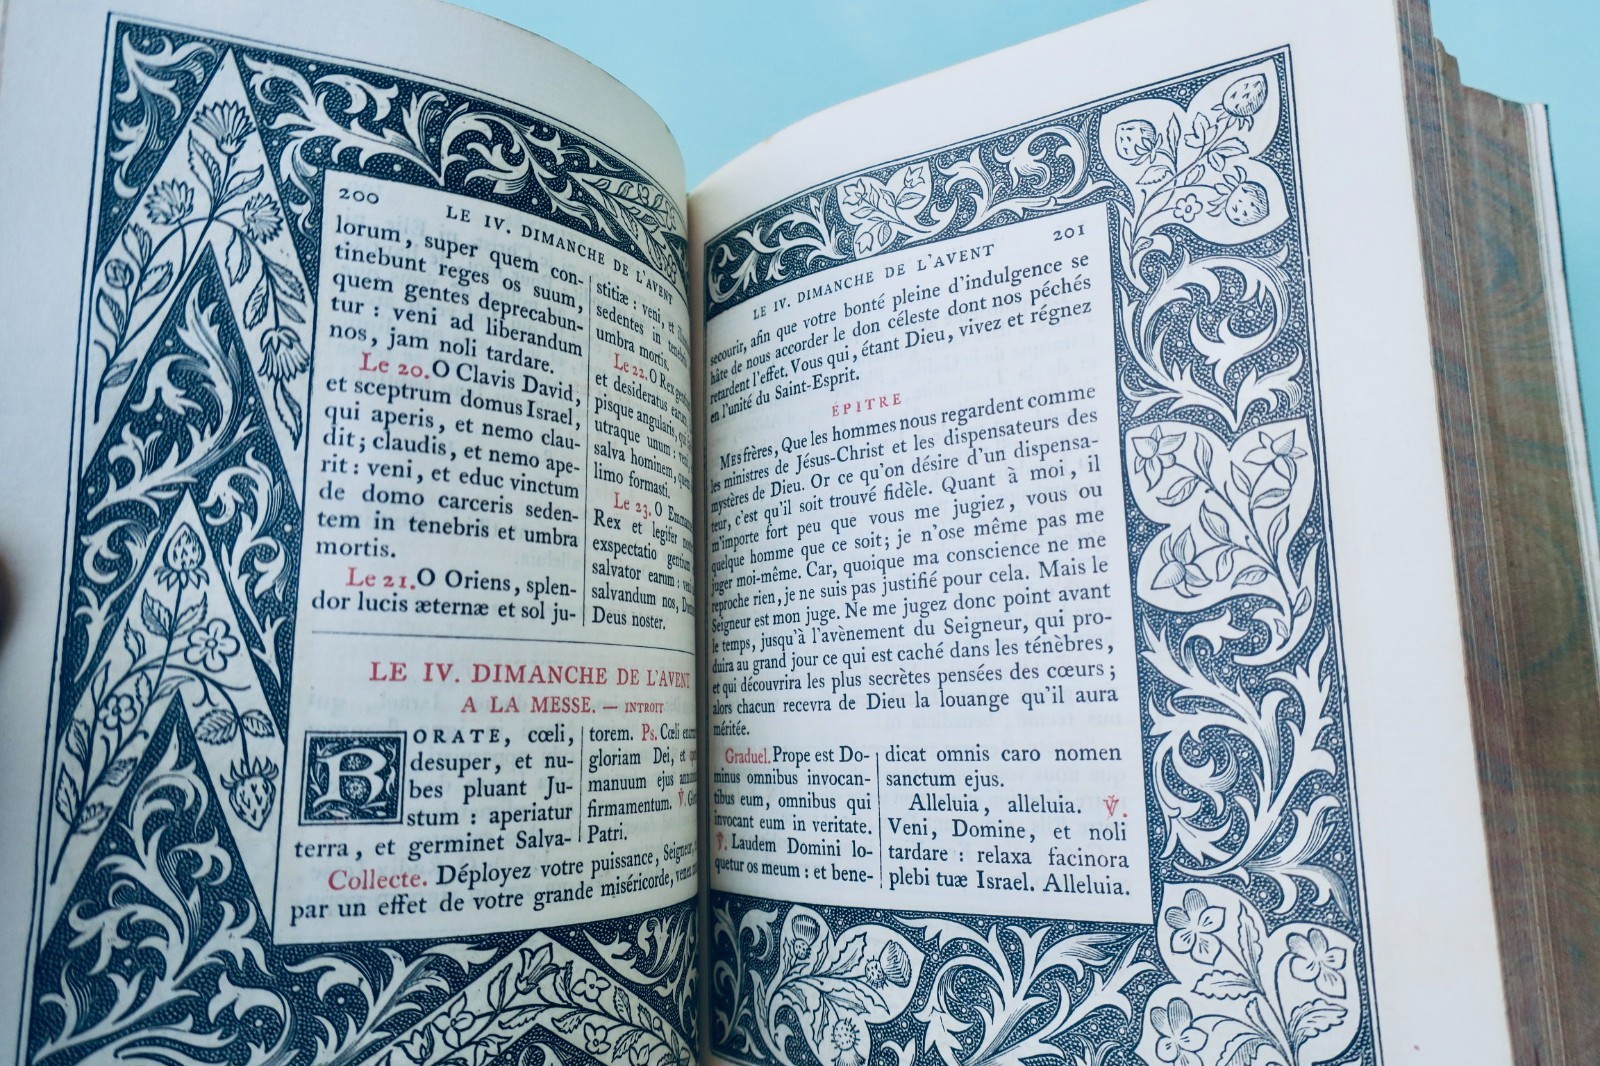 200
LE IV. DIMANCHE DE L'AVENT
lorum, super quem con-
tinebunt reges os suum,
quem gentes deprecabun-
tur : veni ad liberandum
nos, jam noli tardare.
Le 20. O Clavis David,
et sceptrum domus Israel,
qui aperis, et nemo clau-
dit; claudis, et nemo ape-
rit : veni, et educ vinctum
de domo carceris seden-
tem in tenebris et umbra
mortis.
Le 21. O Oriens, splen-
dor lucis æternæ et sol ju-
stitiæ : veni, et
sedentes in
umbra mortis.
Le 22. O Rex
et desideratus
pisque angularis, qui
utraque unum : veni,
salva hominem,
limo formasti.
Le 23. O
Rex et legifer
exspectatio
salvator earum : veni
salvandum nos,
Deus noster.
LE IV. DIMANCHE DE L'AVENT
A LA MESSE. — INTROIT
RORATE, cœli,
desuper, et nu-
bes pluant Ju-
stum : aperiatur
terra, et germinet Salva-
torem. Ps. Cœli
gloriam Dei, et
manuum ejus
firmamentum. ℣.
Patri.
Collecte. Déployez votre puissance, Seigneur,
par un effet de votre grande miséricorde,
201
LE IV. DIMANCHE DE L'AVENT
secourir, afin que votre bonté pleine d'indulgence se
hâte de nous accorder le don céleste dont nos péchés
retardent l'effet. Vous qui, étant Dieu, vivez et régnez
en l'unité du Saint-Esprit.
ÉPITRE
MES frères, Que les hommes nous regardent comme
les ministres de Jésus-Christ et les dispensateurs des
mystères de Dieu. Or ce qu'on désire d'un dispensa-
teur, c'est qu'il soit trouvé fidèle. Quant à moi, il
m'importe fort peu que vous me jugiez, vous ou
quelque homme que ce soit; je n'ose même pas me
juger moi-même. Car, quoique ma conscience ne me
reproche rien, je ne suis pas justifié pour cela. Mais le
Seigneur est mon juge. Ne me jugez donc point avant
le temps, jusqu'à l'avènement du Seigneur, qui pro-
duira au grand jour ce qui est caché dans les ténèbres,
et qui découvrira les plus secrètes pensées des cœurs ;
alors chacun recevra de Dieu la louange qu'il aura
méritée.
Graduel. Prope est Do-
minus omnibus invocan-
tibus eum, omnibus qui
invocant eum in veritate.
℣. Laudem Domini lo-
quetur os meum : et bene-
dicat omnis caro nomen
sanctum ejus.
Alleluia, alleluia. ℣.
Veni, Domine, et noli
tardare : relaxa facinora
plebi tuæ Israel. Alleluia.